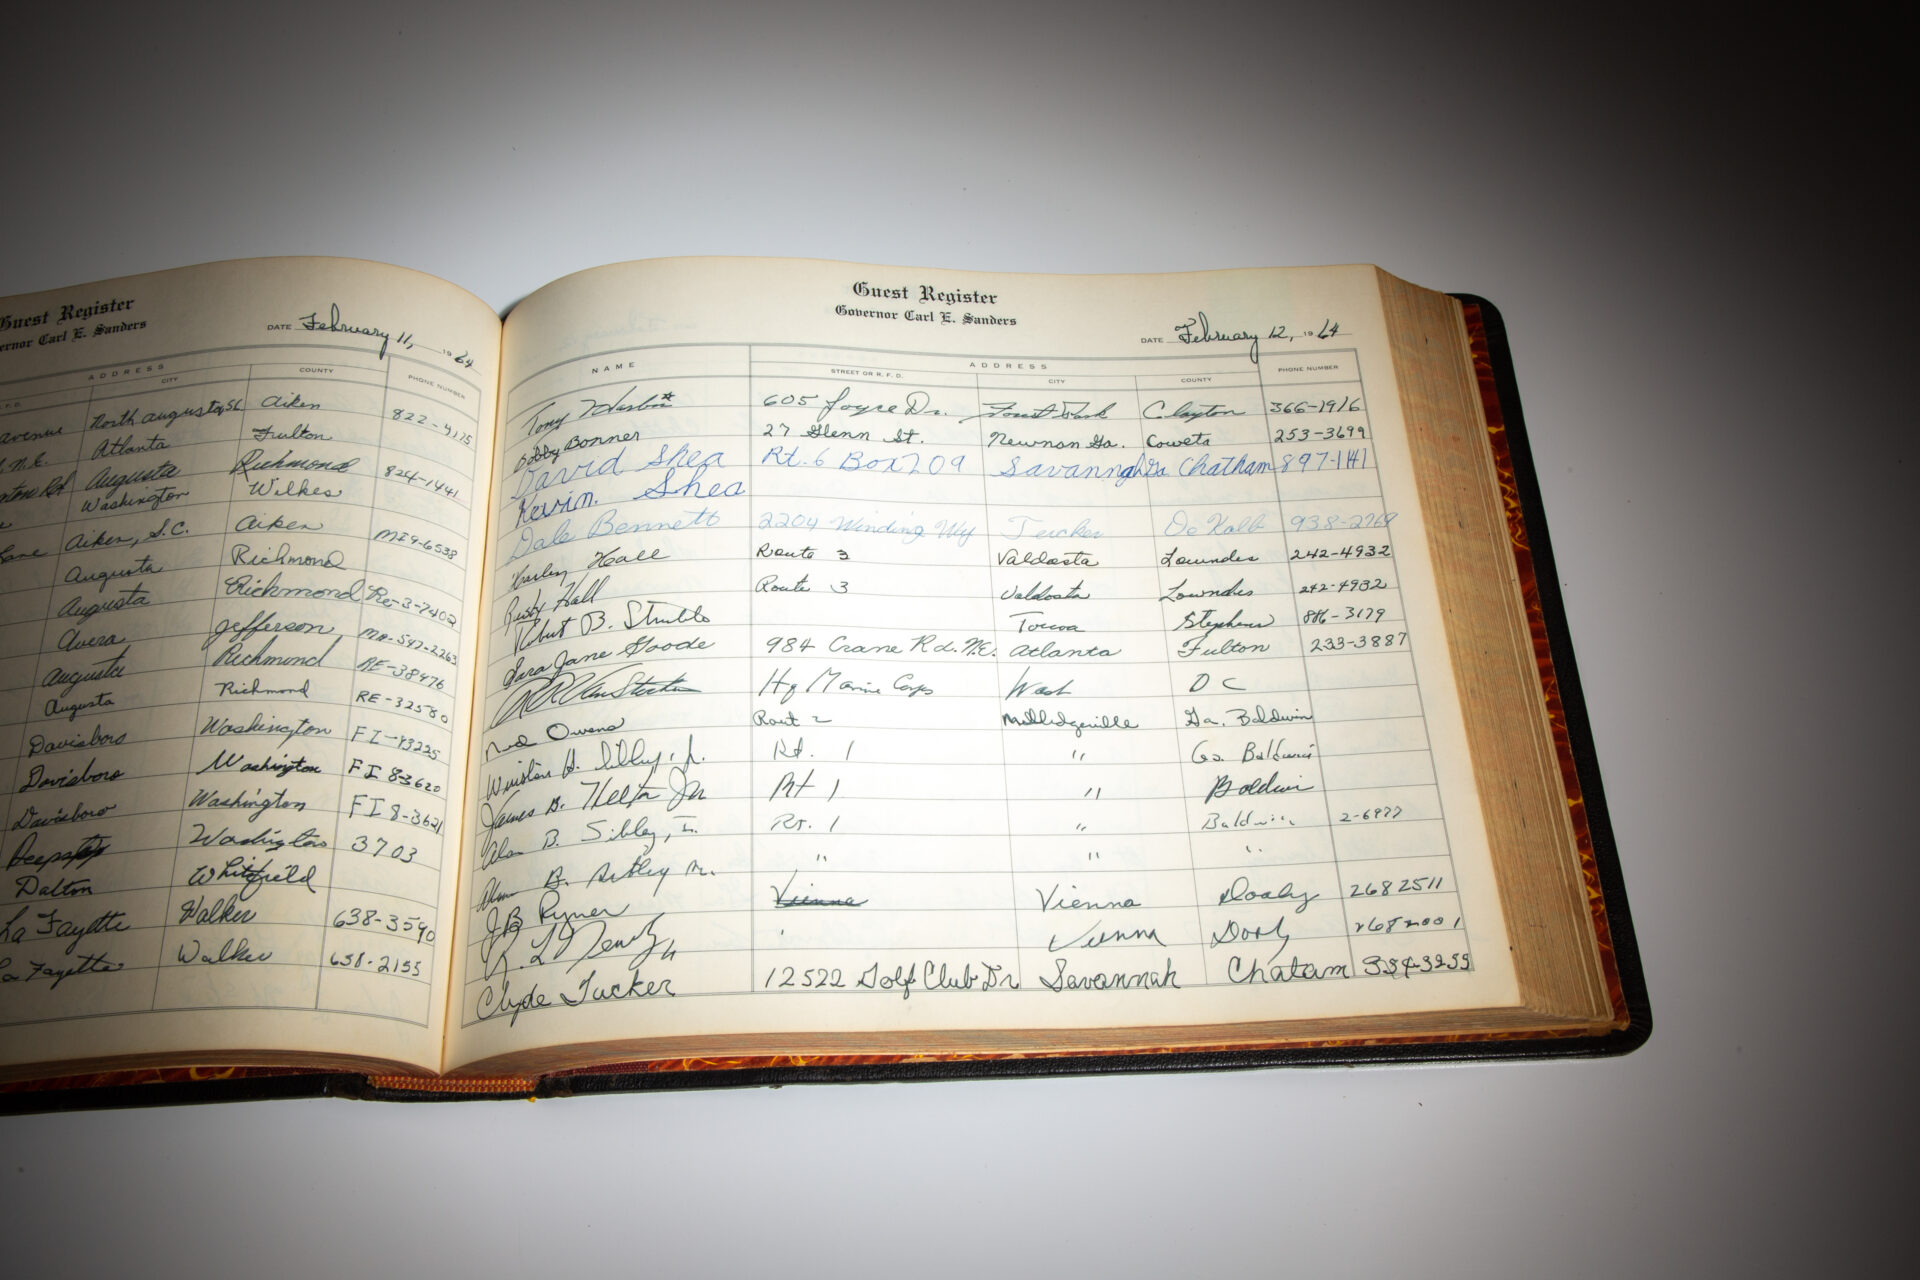 Guest Register
ernor Carl E. Sanders
DATE February 11, 1964
ADDRESS
R.F.D. CITY COUNTY PHONE NUMBER
avenue North Augusta, S.C. Aiken 822-4175
N.E. Atlanta Fulton
Rd Augusta Richmond 824-1441
Washington Wilkes
Lane Aiken, S.C. Aiken MI9-6538
Augusta Richmond
Augusta Richmond Re-3-7402
Avera Jefferson 547-2263
Augusta Richmond RE-38476
Augusta Richmond RE-32580
Davisboro Washington FI-83225
Davisboro Washington FI 8-3620
Davisboro Washington FI 8-3621
Deepstep Washington 3703
Dalton Whitfield
La Fayette Walker 638-3590
La Fayette Walker 638-2155
Guest Register
Governor Carl E. Sanders
DATE February 12, 1964
NAME ADDRESS
STREET OR R.F.D. CITY COUNTY PHONE NUMBER
Tony 605 Joyce Dr. Forest Park Clayton 366-1916
Bobby Bonner 27 Glenn St. Newnan Ga. Coweta 253-3699
David Shea Rt. 6 Box 209 Savannah Ga Chatham 897-1141
Kevin Shea
Dale Bennett 2204 Winding Wy Tucker De Kalb 938-2769
Harley Hall Route 3 Valdosta Lowndes 242-4932
Rusty Hall Route 3 Valdosta Lowndes 242-4932
Robert B. Struble Toccoa Stephens 886-3179
Sara Jane Goode 984 Crane Rd. N.E. Atlanta Fulton 233-3887
Hq Marine Corps Wash D C
Ned Owens Rout 2 Milledgeville Ga. Baldwin
Winston H. Sibley, Jr. Rt. 1 " Ga. Baldwin
James B. Helton Jr Rt 1 " Baldwin
Alan B. Sibley, Rt. 1 " Baldwin 2-6977
B. Sibley Sr. " " "
JB Rymer Vienna Vienna Dooly 2682511
Vienna Dooly 2682001
Clyde Tucker 12522 Golf Club Dr Savannah Chatam 354-3255